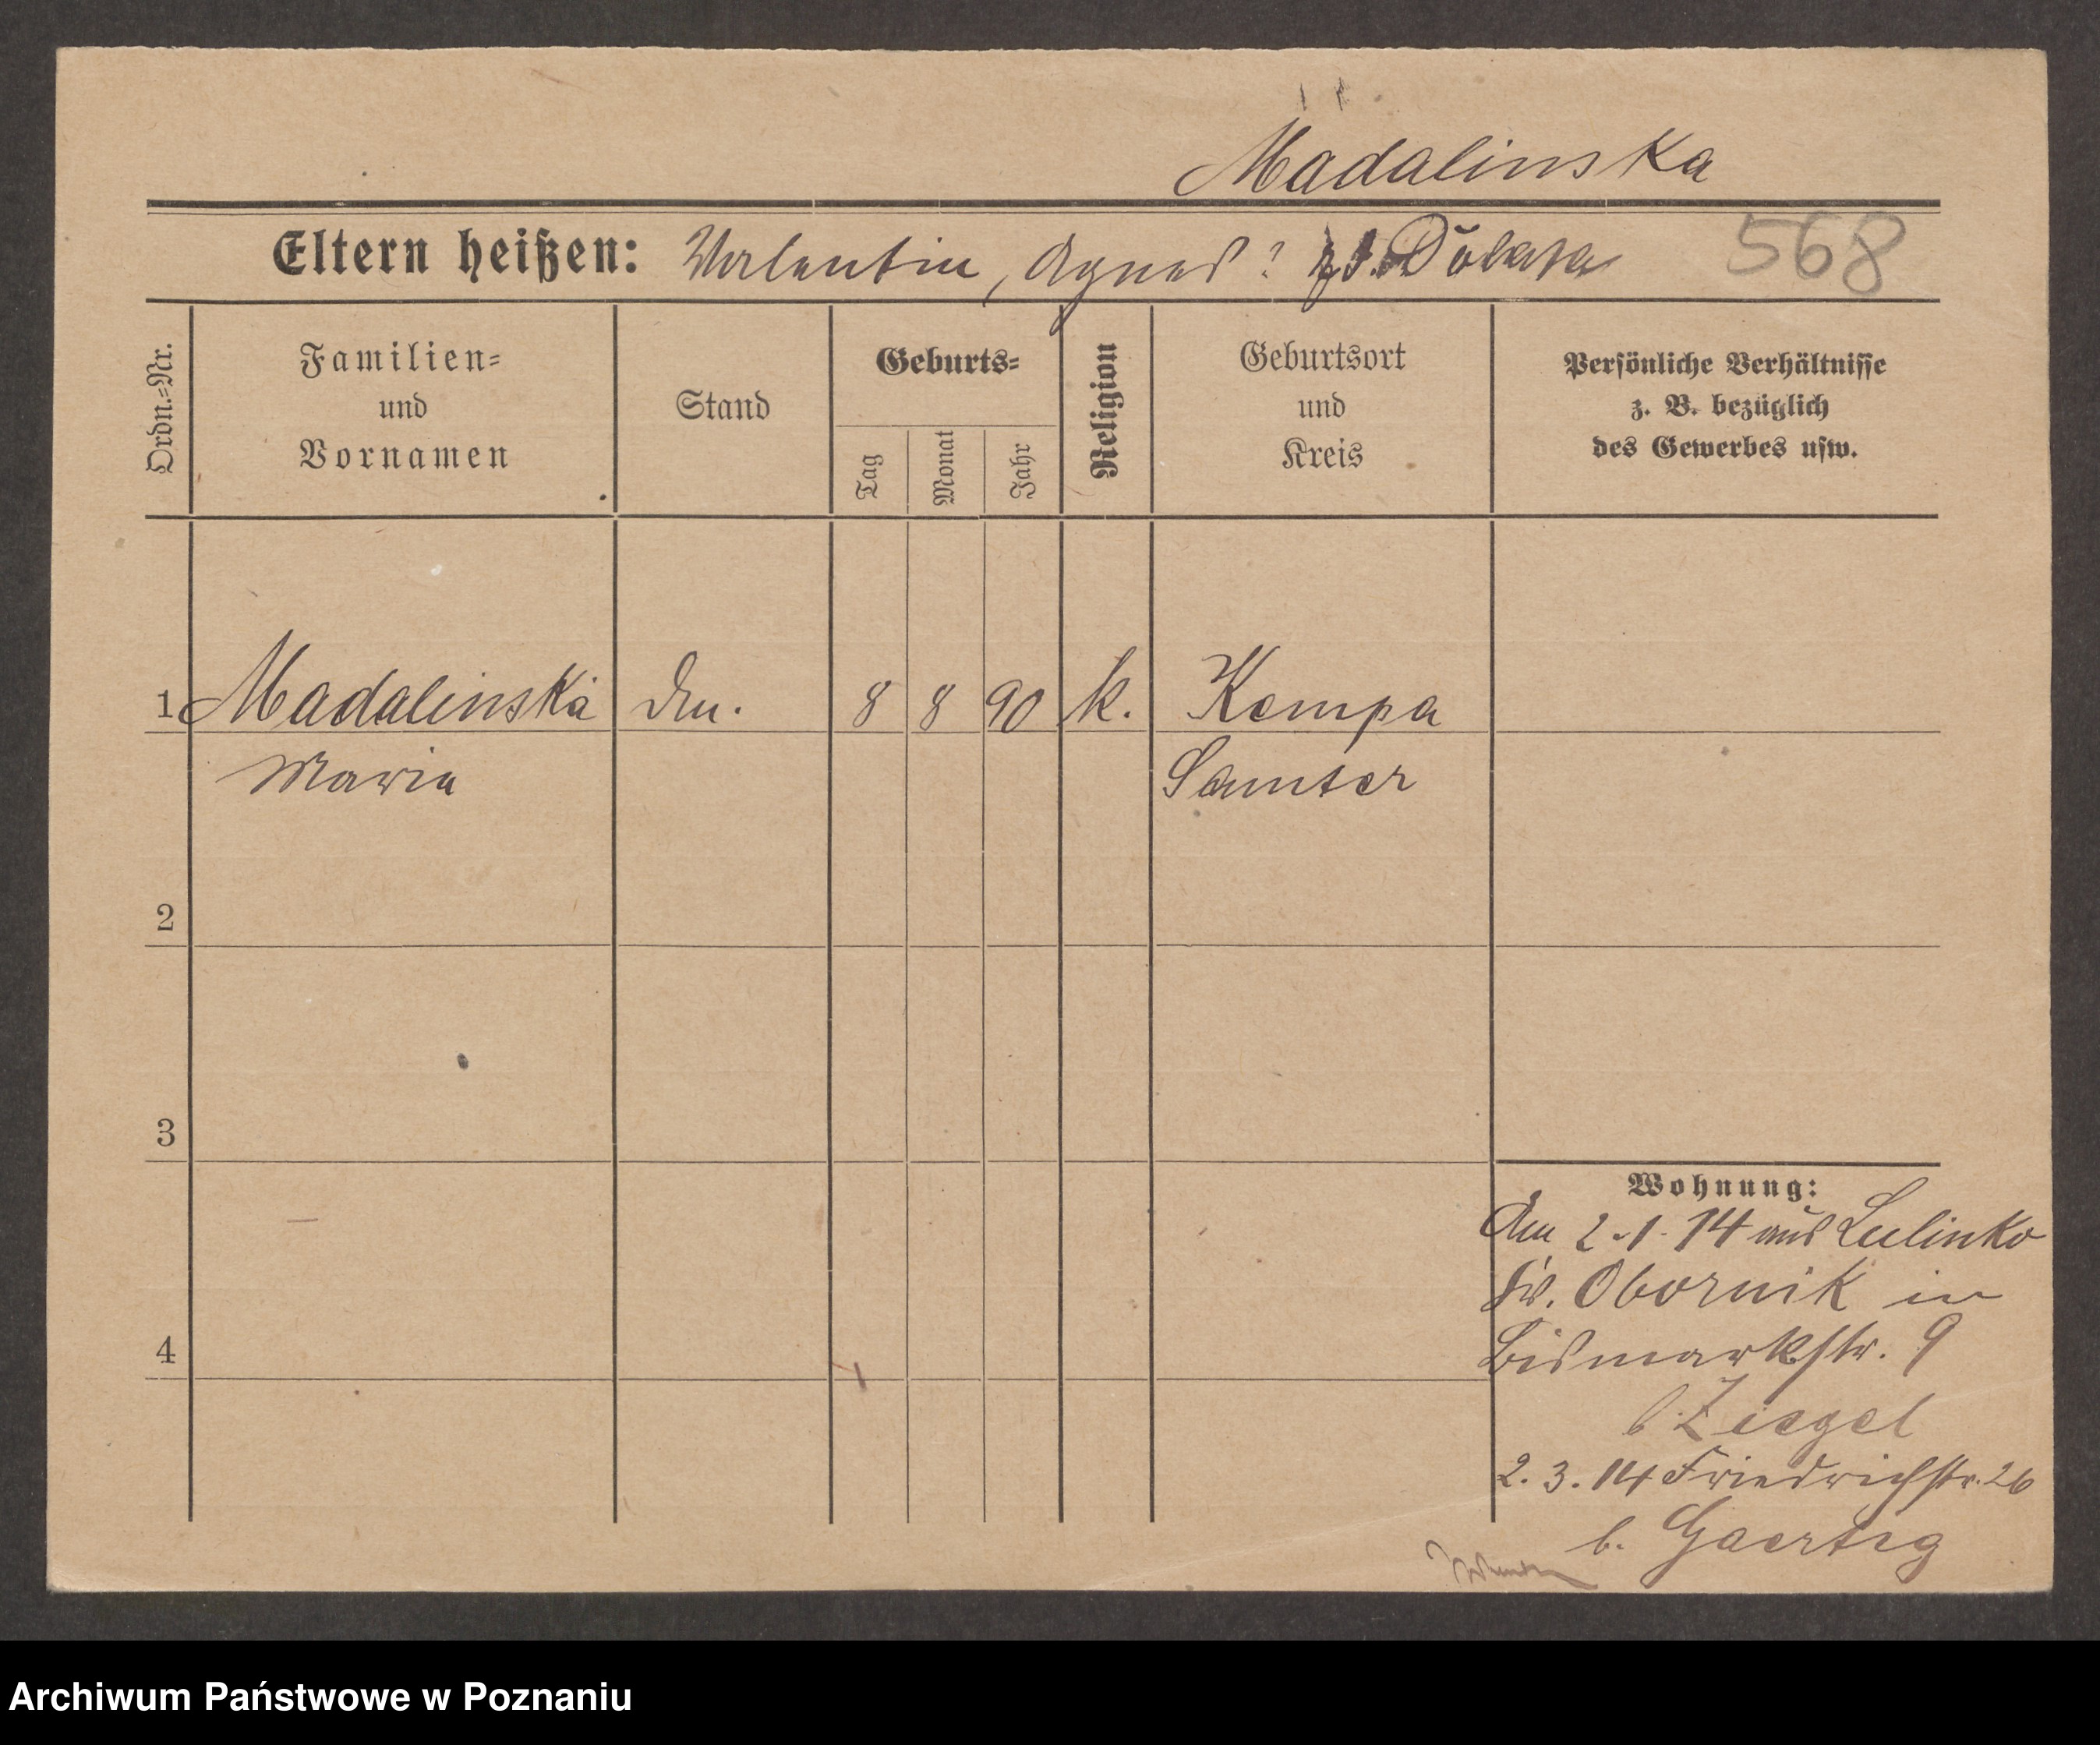 Madalinska
Eltern heißen: Valentin, Agnes? 568
Ordn.=Nr.
Familien=
und
Vornamen
Stand
Geburts=
Tag
Monat
Jahr
Religion
Geburtsort
und
Kreis
Persönliche Verhältnisse
z. B. bezüglich
des Gewerbes usw.
1 Madalinska 8 8 90 k. Kempa
Maria Samter
2
3
4
Wohnung:
Am 2.1.14 aus Lulinko
Obornik in
Bismarkstr. 9
b. Ziegel
2.3.14 Friedrichstr. 26
b. Gaertig
Archiwum Państwowe w Poznaniu